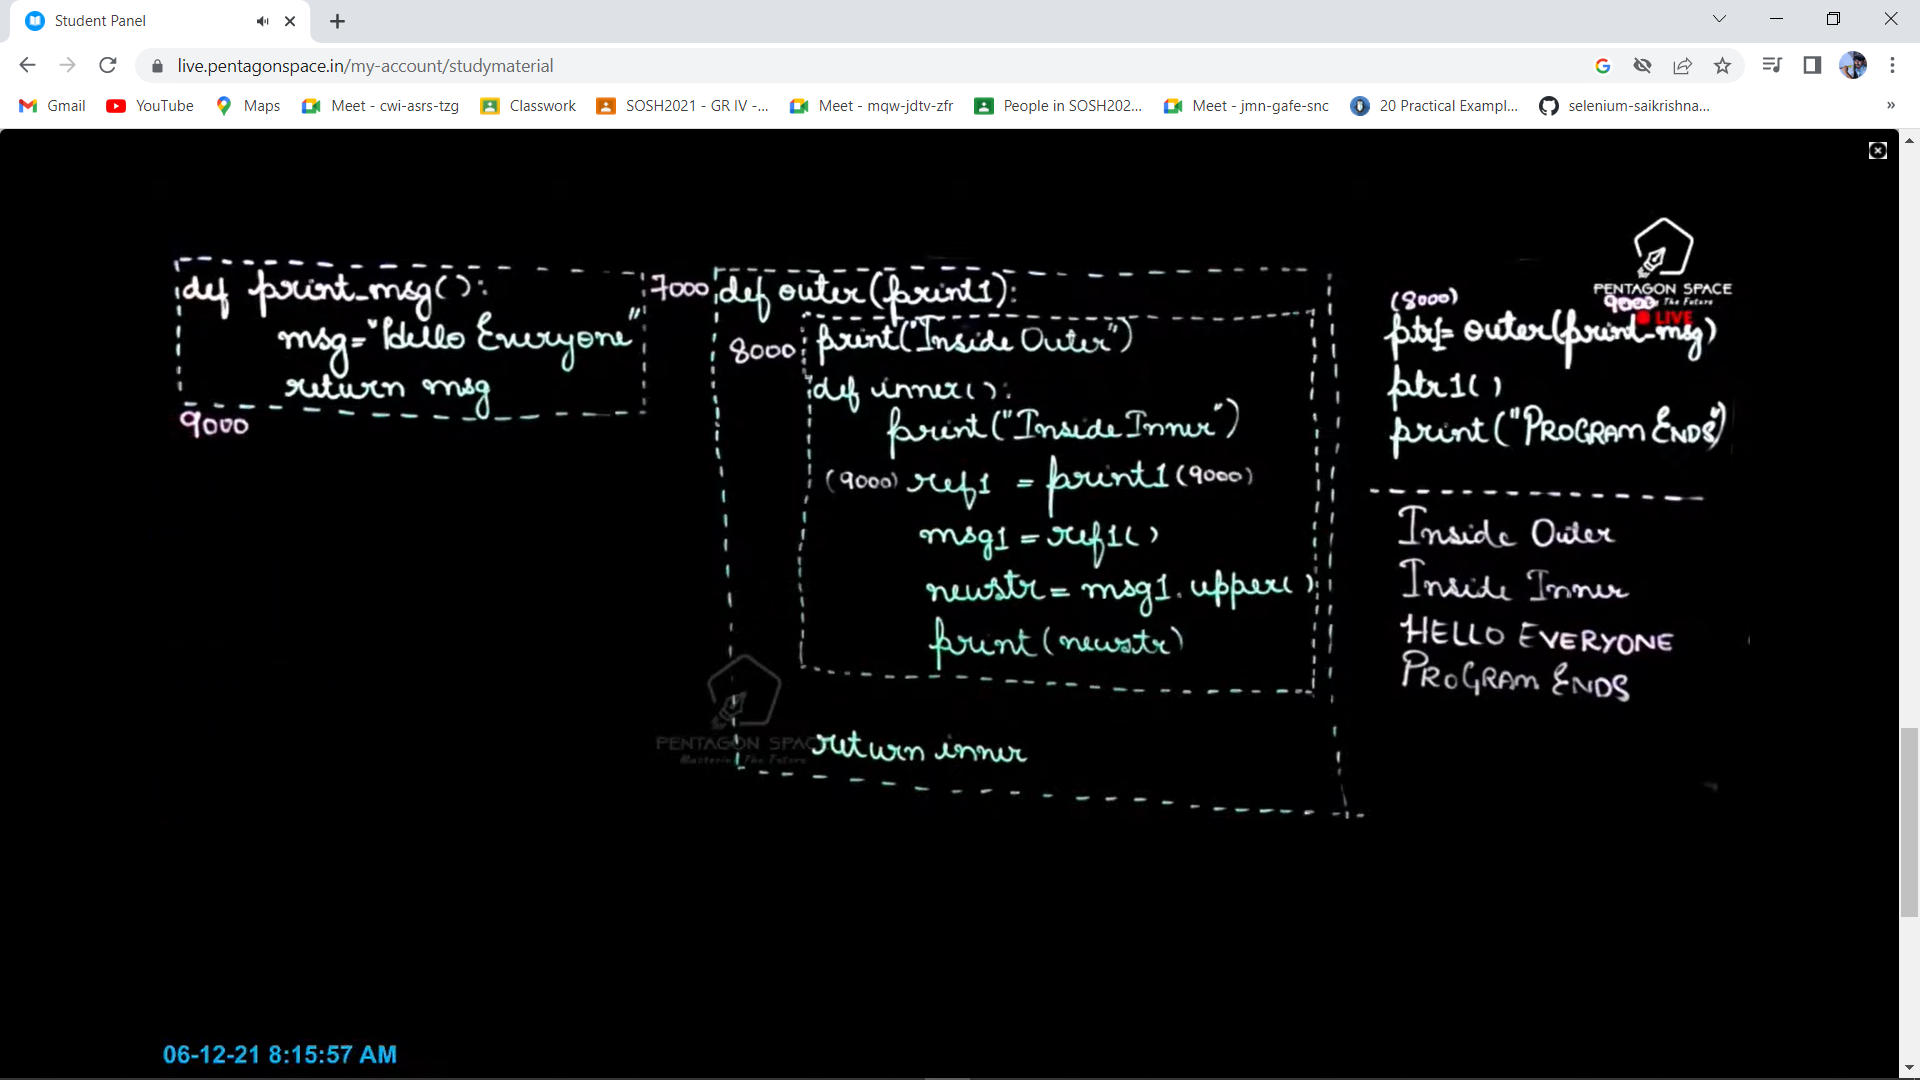 Student Panel
live.pentagonspace.in/my-account/studymaterial
Gmail
YouTube
Maps
Meet - cwi-asrs-tzg
Classwork
SOSH2021 - GR IV -...
Meet - mqw-jdtv-zfr
People in SOSH202...
Meet - jmn-gafe-snc
20 Practical Exampl...
selenium-saikrishna...
»
def print_msg():
msg="Hello Everyone"
return msg
9000
7000
def outer(print1):
8000
print("Inside Outer")
def inner():
print("Inside Inner")
(9000) ref1 = print1 (9000)
msg1 = ref1()
newstr = msg1.upper()
print(newstr)
return inner
PENTAGON SPAC
Mastering The Future
PENTAGON SPACE
The Future
LIVE
(8000)
9000
ptr1= outer(print_msg)
ptr1()
print("PROGRAM ENDS")
Inside Outer
Inside Inner
HELLO EVERYONE
PROGRAM ENDS
06-12-21 8:15:57 AM